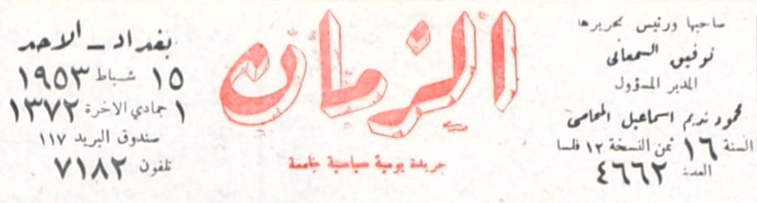 صاحبها ورئيس تحريرها
توفيق السمعاني
المدير المسؤول
محمود نديم اسماعيل المحامي
السنة ١٦ ثمن النسخة ١٢ فلسا
العدد ٤٦٦٢
الزمان
جريدة يومية سياسية جامعة
بغداد - الاحد
١٥ شباط ١٩٥٣
١ جمادي الاخرة ١٣٧٢
صندوق البريد ١١٧
تلفون ٧١٨٢